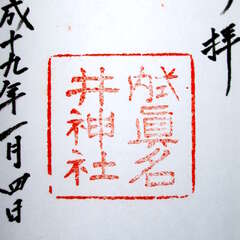 拝
式内眞名
井神社
成十九年一月四日